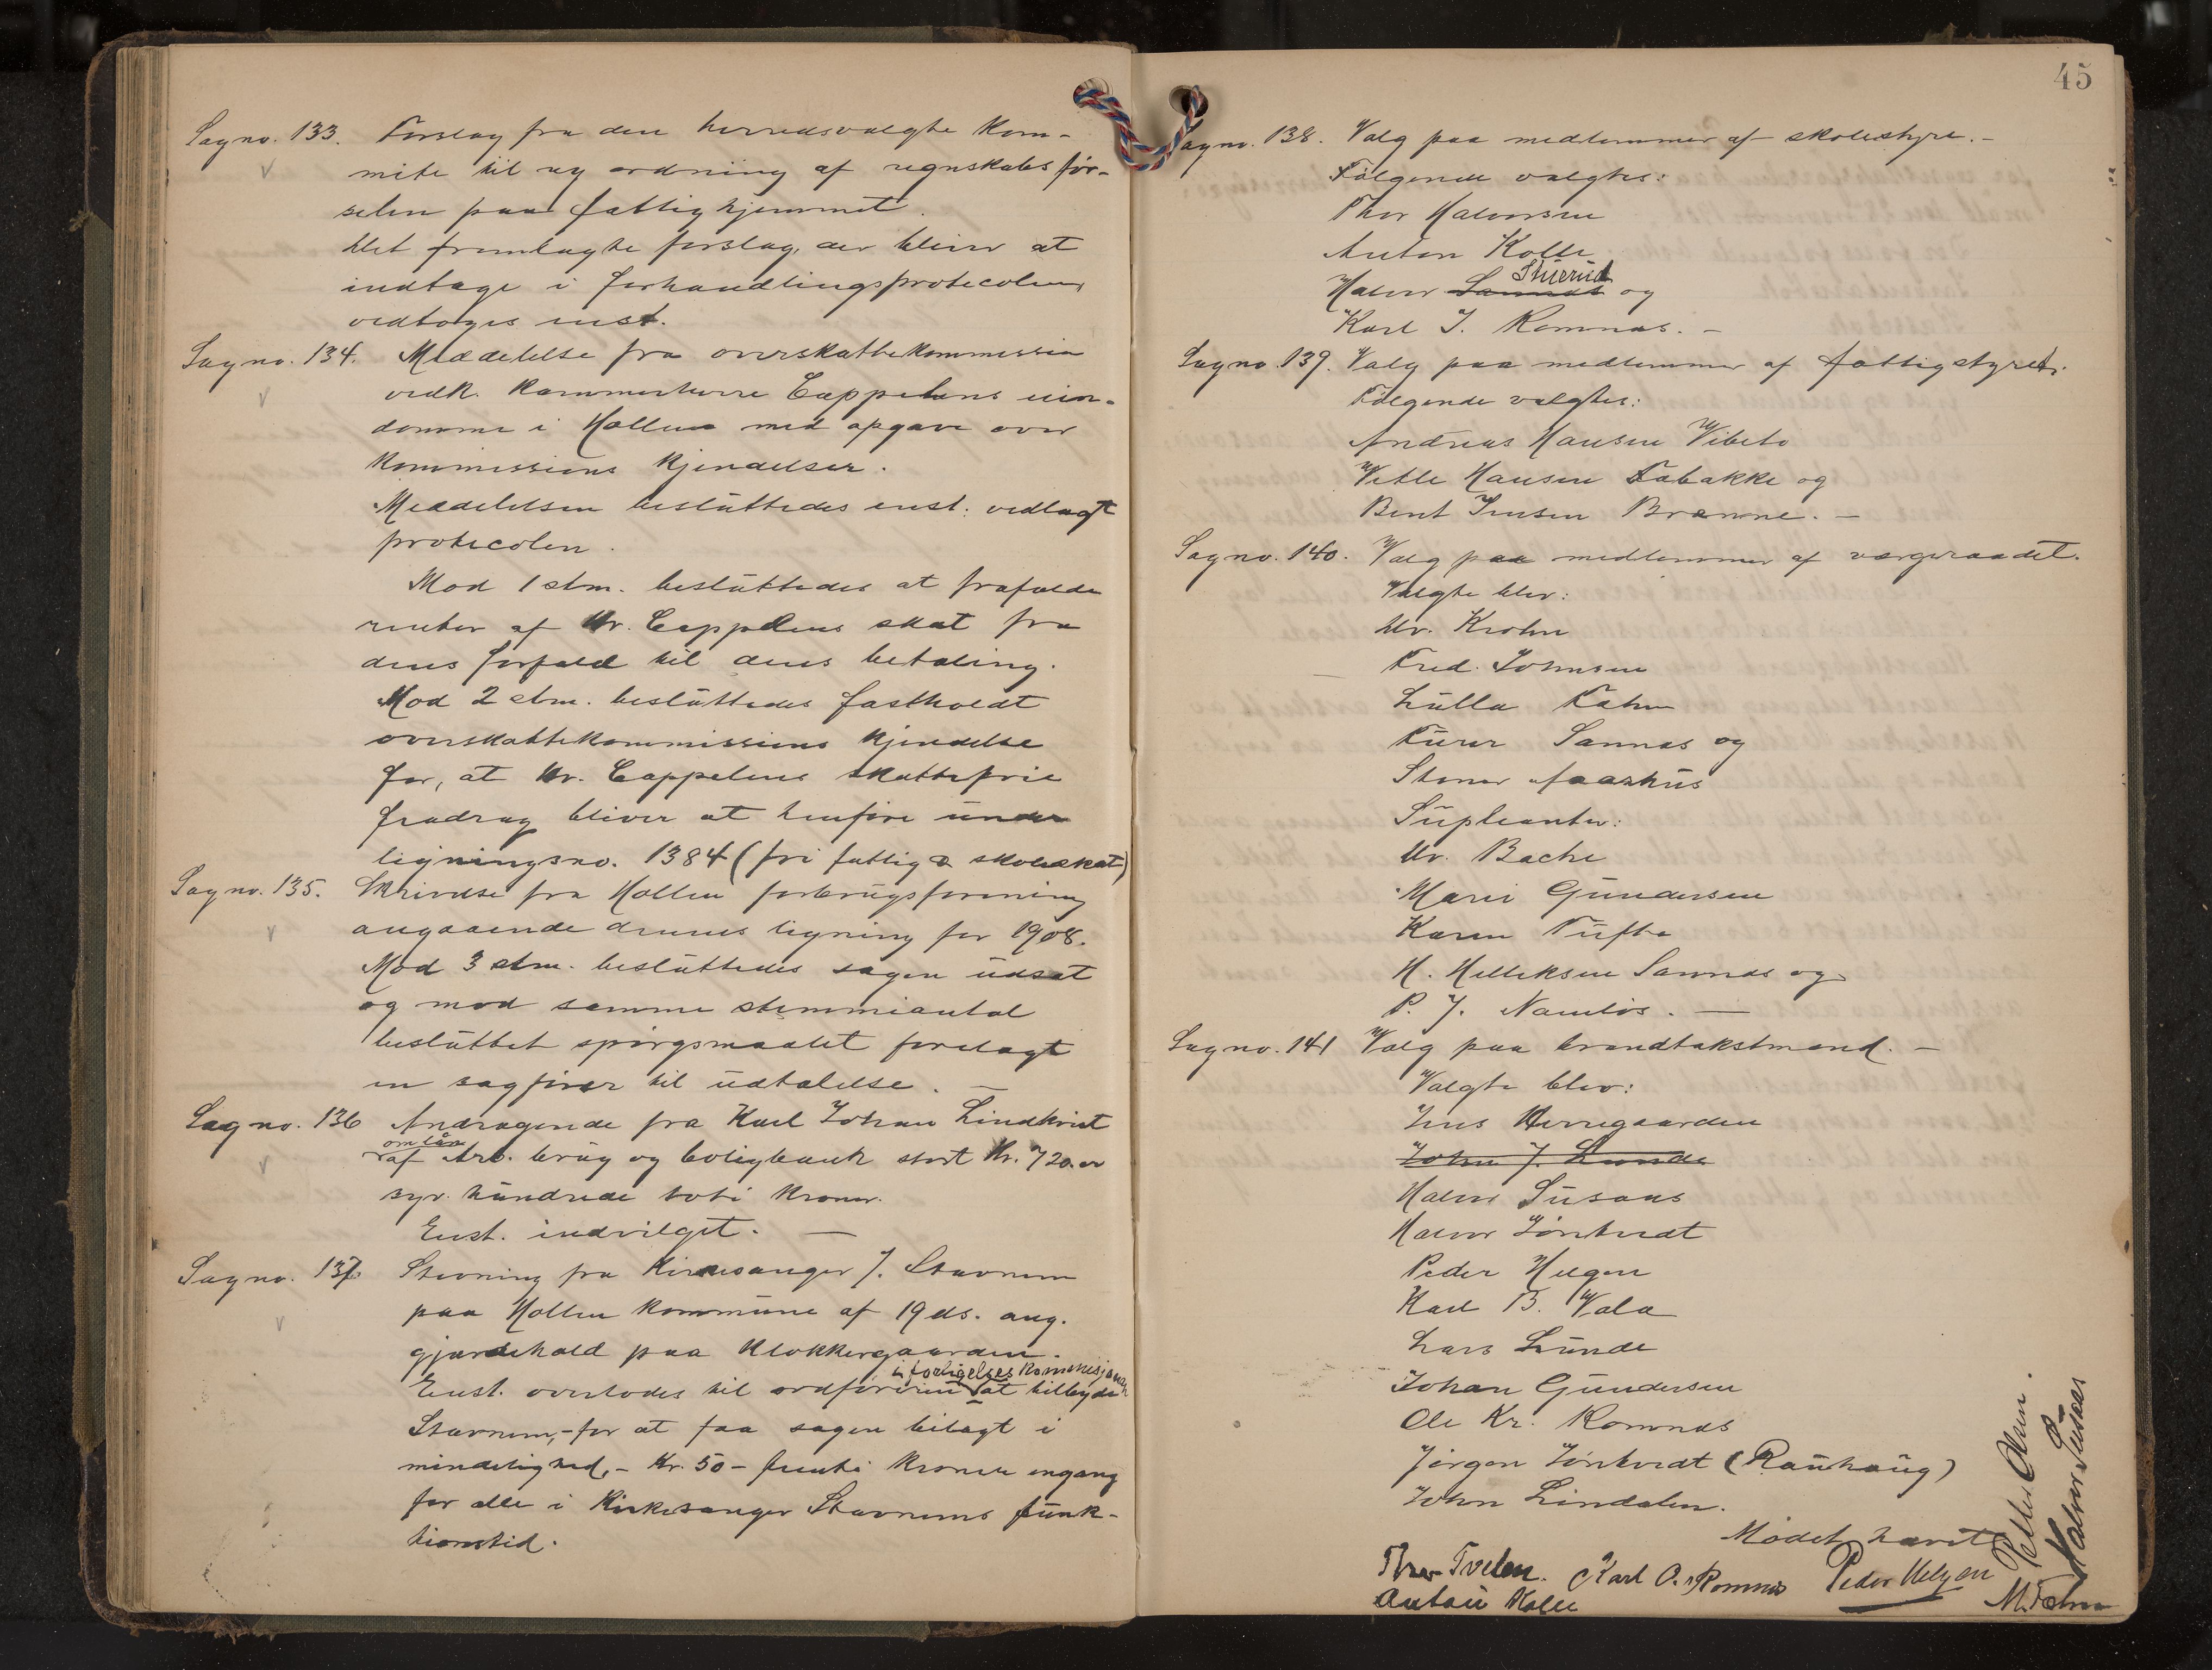 Sag no. 133. Forslag fra den herredsvalgte kom-
mite til ny ordning af regnskabsfør-
selen paa fattighjemmet.
Det fremlagte forslag, der bliver at
indtage i forhandlingsprotocolen,
vedtoges enst.
Sag no. 134. Meddelelse fra overskattekommissia
vedk. Kammerherre Cappelens eien-
domme i Hollen med opgave over
kommissions kjendelser.
Meddelelsen besluttedes enst. vedlagt
protocolen.
Mod 1 stm. besluttedes at frafalde
renter af Hr. Cappelens skat fra
dens forfald til dens betaling.
Mod 2 stm. besluttedes fastholdt
overskattekommissions kjendelse
for, at Hr. Cappelens skattefrie
fradrag bliver at henføre under
ligningsno. 1384 (fri fattig & skoleskat)
Sag no. 135. Skrivelse fra Hollen forbrugsforening
angaaende dennes ligning for 1908.
Mod 3 stm. besluttedes sagen udsat
og mod samme stemmeantal
besluttet spørgsmaalet forelagt
en sagfører til udtalelse. —
Sag no. 136 Andragende fra Karl Johan Lindkvist
om lån
af Arb. brug og boligbank stort Kr. 720.
syv hundrede toti kroner.
Enst. indvilget. —
Sag no. 137 Stevning fra Kirkesanger J. Stavnem
paa Hollen kommune af 19 ds. ang.
gjærdehold paa Klokkergaarden.
i forligelseskommisjonen
Enst. overlodes til ordføreren at tilbyde
Stavnem, - for at faa sagen bilagt i
mindelighed, - Kr. 50 - femti kroner engang
for alle i Kirkesanger Stavnems funk-
tionstid.
45
Sag no. 138. Valg paa medlemmer af skolestyre. -
Følgende valgtes:
Thor Halvorsen
Anton Kolle
Stuerud
Halvor Sannes og
Karl J. Romnæs. -
Sag no. 139. Valg paa medlemmer af fattigstyret.
Følgende valgtes:
Andreas Hansen Vibeto
Vetle Hansen Tabakke og
Bent Jensen Brenne. -
Sag no. 140. Valg paa medlemmer af vergeraadet.
Valgte blev:
Dr. Krohn
Fred. Johnsen
Lulla Fahn
Turer Sannes og
Stener Aarhus
Supleanter:
Dr. Bache
Marie Gundersen
Karen Tufte
H. Helleksen Sannes og
P. J. Namløs. —
Sag no. 141 Valg paa brandtakstmænd. -
Valgte blev:
Jens Herregaarden
John J. Lunde
Halvor Susaas
Halvor Jøntvedt
Peder Helgen
Karl B. Vala
Lars Lunde
Johan Gundersen
Ole Kr. Romnæs
Jørgen Jøntvedt (Rauhaug)
John Lindalen.
Mødet hævet
Thor Tvelen. Karl O. Romnes Peder Helgen
Anton Kolle
Peder Olsen.
Halvor Susaas
M. Fahn